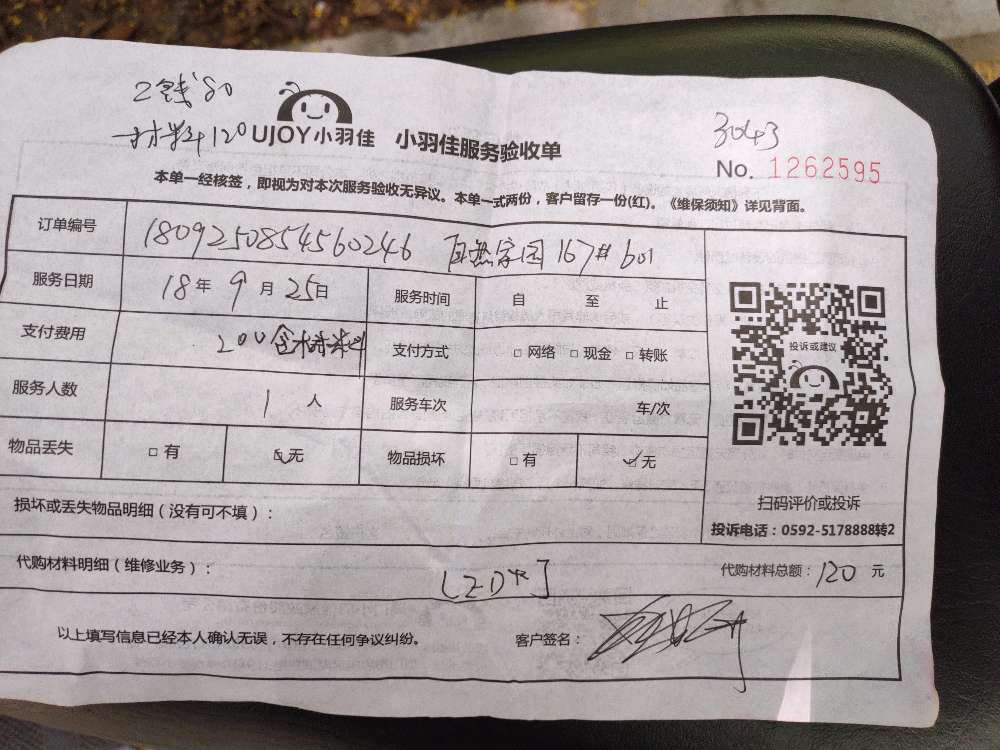 工钱80
材料120
UJOY小羽佳 小羽佳服务验收单
3043
No. 1262595
本单一经核签，即视为对本次服务验收无异议。本单一式两份，客户留存一份(红)。《维保须知》详见背面。
订单编号 1809250854560246 自然家园 167# 601
服务日期 18年9月25日 服务时间 自 至 止
支付费用 200含材料 支付方式 □网络 □现金 □转账
服务人数 1人 服务车次 车/次
物品丢失 □有 ☑无 物品损坏 □有 ☑无
投诉或建议
扫码评价或投诉
投诉电话：0592-5178888转2
损坏或丢失物品明细（没有可不填）：
代购材料明细（维修业务）： 代购材料总额：120元
以上填写信息已经本人确认无误，不存在任何争议纠纷。 客户签名：